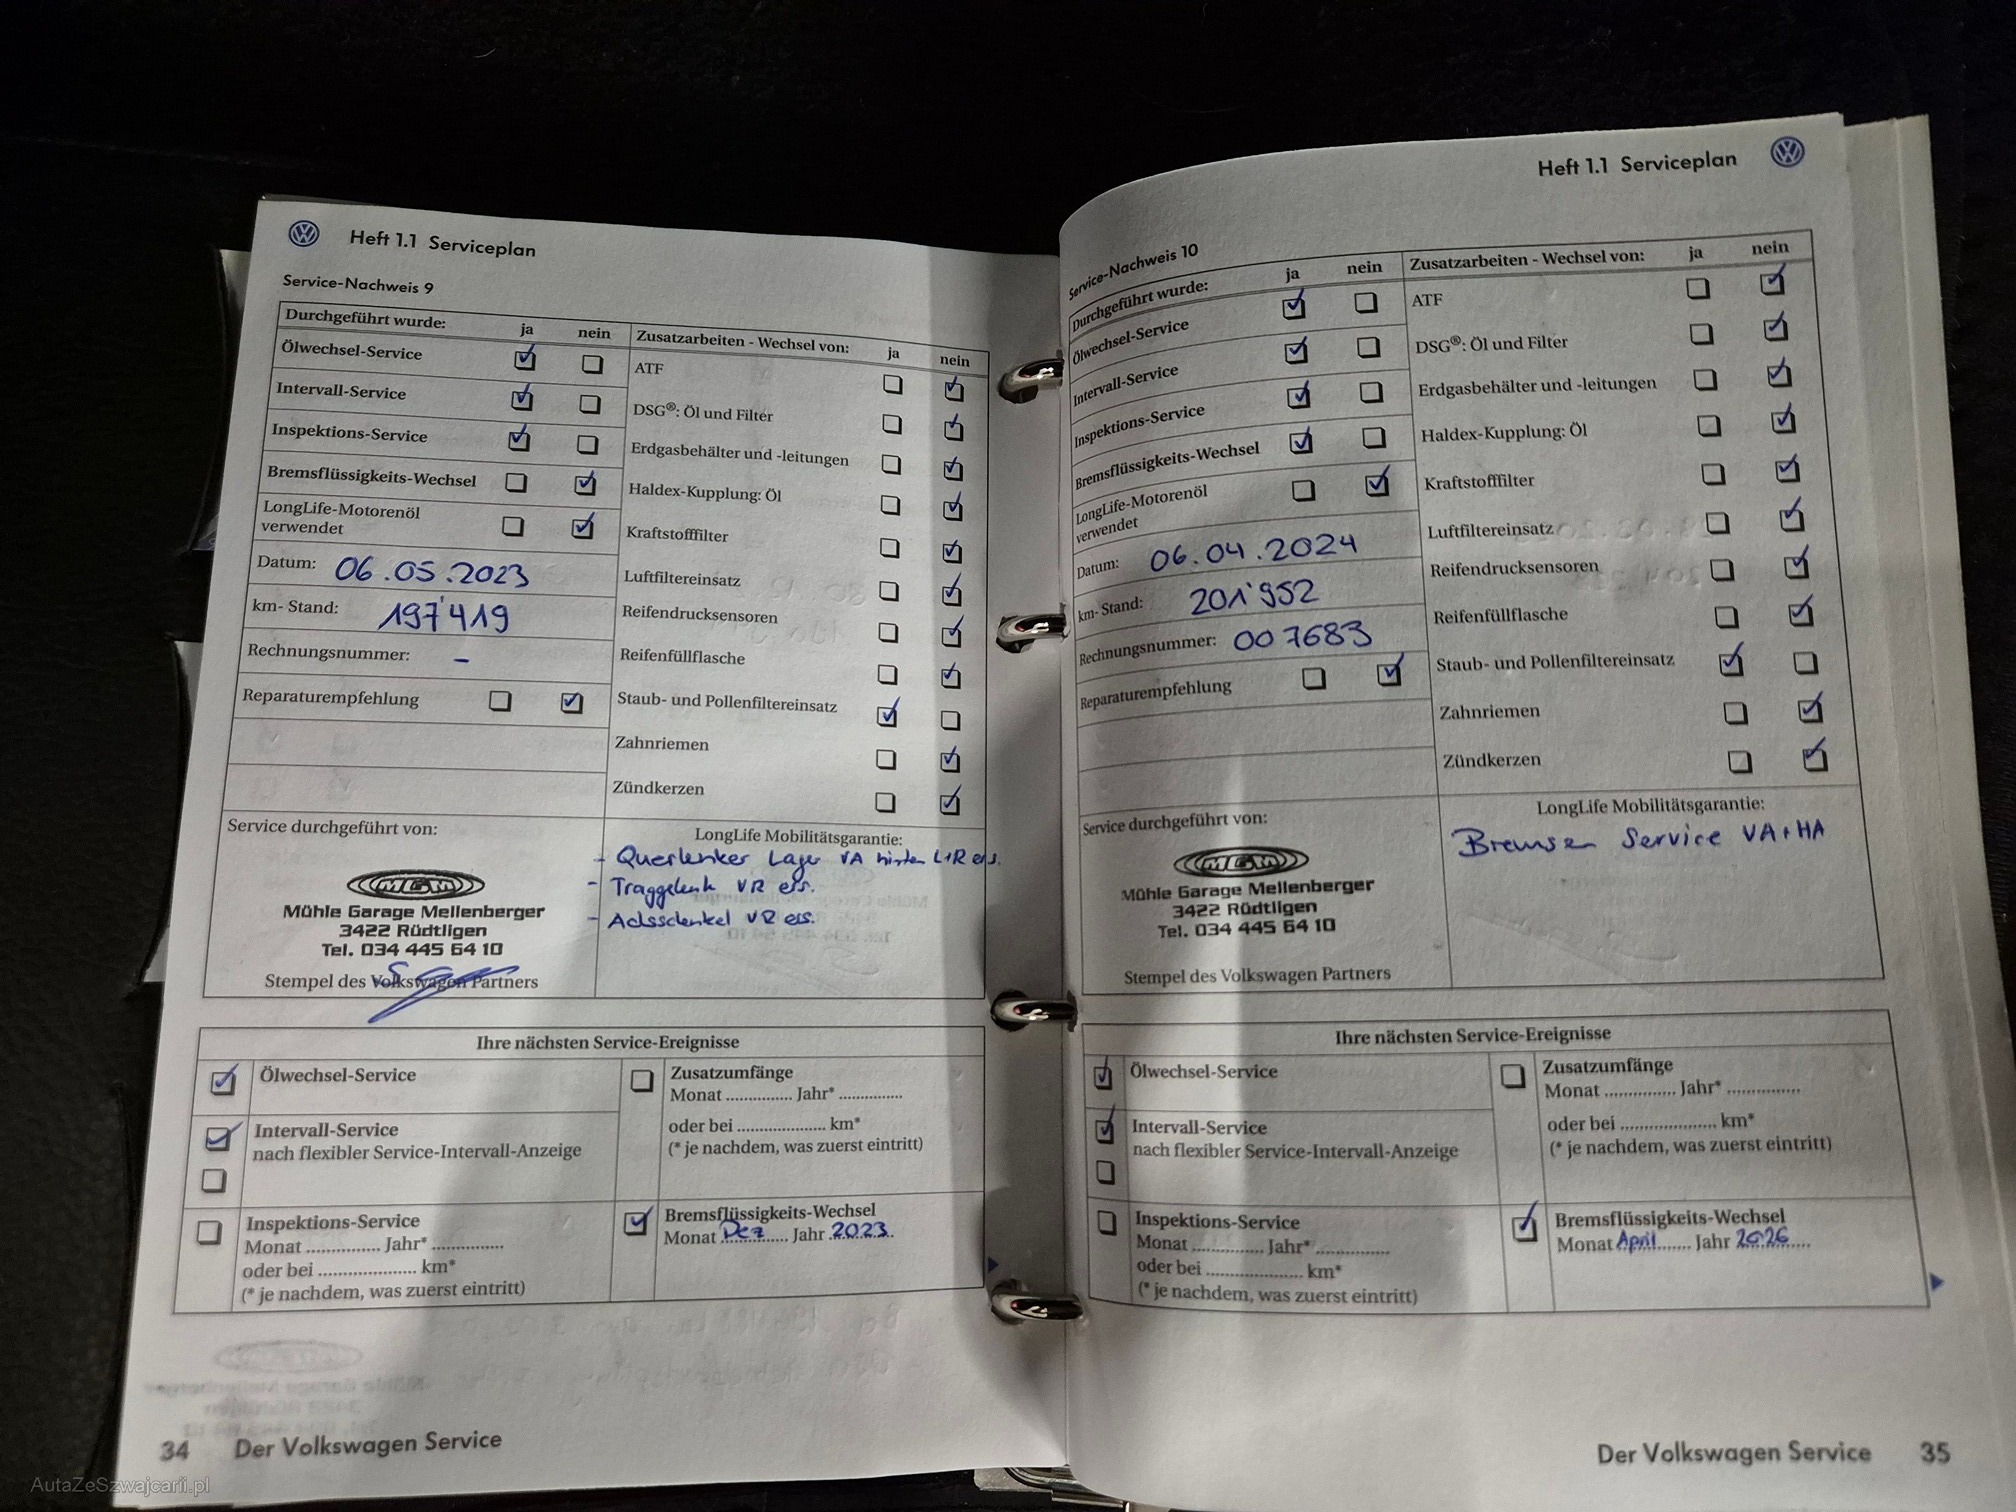 Heft 1.1 Serviceplan
Service-Nachweis 9
Durchgeführt wurde: ja nein
Ölwechsel-Service
Intervall-Service
Inspektions-Service
Bremsflüssigkeits-Wechsel
LongLife-Motorenöl
verwendet
Datum: 06.05.2023
km- Stand: 197'419
Rechnungsnummer: -
Reparaturempfehlung
Zusatzarbeiten - Wechsel von: ja nein
ATF
DSG®: Öl und Filter
Erdgasbehälter und -leitungen
Haldex-Kupplung: Öl
Kraftstofffilter
Luftfiltereinsatz
Reifendrucksensoren
Reifenfüllflasche
Staub- und Pollenfiltereinsatz
Zahnriemen
Zündkerzen
Service durchgeführt von:
MGM
Mühle Garage Mellenberger
3422 Rüdtligen
Tel. 034 445 64 10
Stempel des Volkswagen Partners
LongLife Mobilitätsgarantie:
- Querlenker Lager VA hinten L+R ers.
- Traggelenk VR ers.
- Achsschenkel VR ers.
Ihre nächsten Service-Ereignisse
Ölwechsel-Service
Intervall-Service
nach flexibler Service-Intervall-Anzeige
Inspektions-Service
Monat ............... Jahr* ...............
oder bei .................... km*
(* je nachdem, was zuerst eintritt)
Zusatzumfänge
Monat ............... Jahr* ...............
oder bei .................... km*
(* je nachdem, was zuerst eintritt)
Bremsflüssigkeits-Wechsel
Monat Dez Jahr 2023
34 Der Volkswagen Service
Heft 1.1 Serviceplan
Service-Nachweis 10
Durchgeführt wurde: ja nein
Ölwechsel-Service
Intervall-Service
Inspektions-Service
Bremsflüssigkeits-Wechsel
LongLife-Motorenöl
verwendet
Datum: 06.04.2024
km- Stand: 201'952
Rechnungsnummer: 007683
Reparaturempfehlung
Zusatzarbeiten - Wechsel von: ja nein
ATF
DSG®: Öl und Filter
Erdgasbehälter und -leitungen
Haldex-Kupplung: Öl
Kraftstofffilter
Luftfiltereinsatz
Reifendrucksensoren
Reifenfüllflasche
Staub- und Pollenfiltereinsatz
Zahnriemen
Zündkerzen
Service durchgeführt von:
MGM
Mühle Garage Mellenberger
3422 Rüdtligen
Tel. 034 445 64 10
Stempel des Volkswagen Partners
LongLife Mobilitätsgarantie:
Bremsen Service VA+HA
Ihre nächsten Service-Ereignisse
Ölwechsel-Service
Intervall-Service
nach flexibler Service-Intervall-Anzeige
Inspektions-Service
Monat ............... Jahr* ...............
oder bei .................... km*
(* je nachdem, was zuerst eintritt)
Zusatzumfänge
Monat ............... Jahr* ...............
oder bei .................... km*
(* je nachdem, was zuerst eintritt)
Bremsflüssigkeits-Wechsel
Monat April Jahr 2026
Der Volkswagen Service 35
AutaZeSzwajcarii.pl